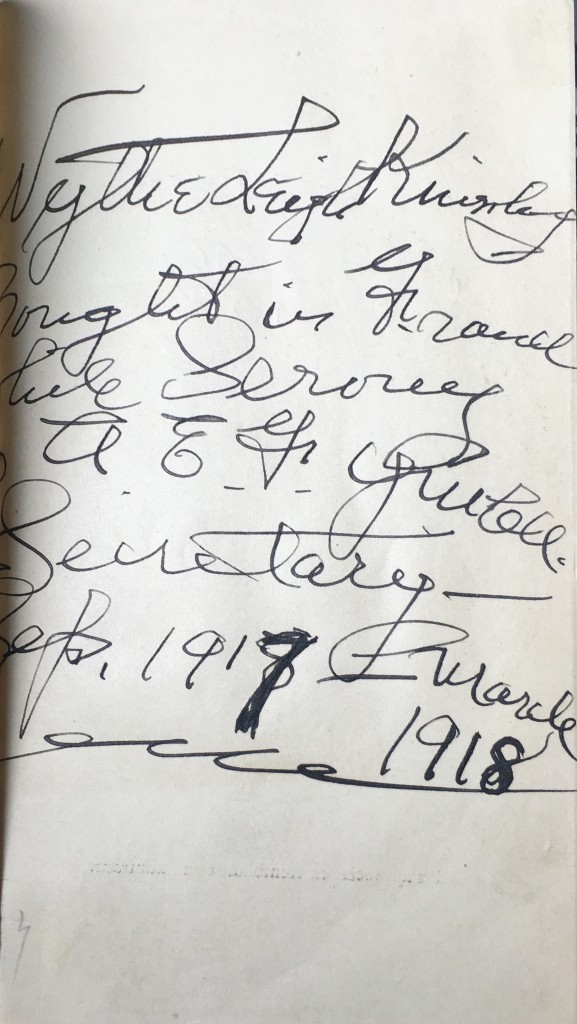 Wythe Leigh Kinsolving
Bought in France
while Serving
A. E. F.
Secretary —
Sep. 1917
1918